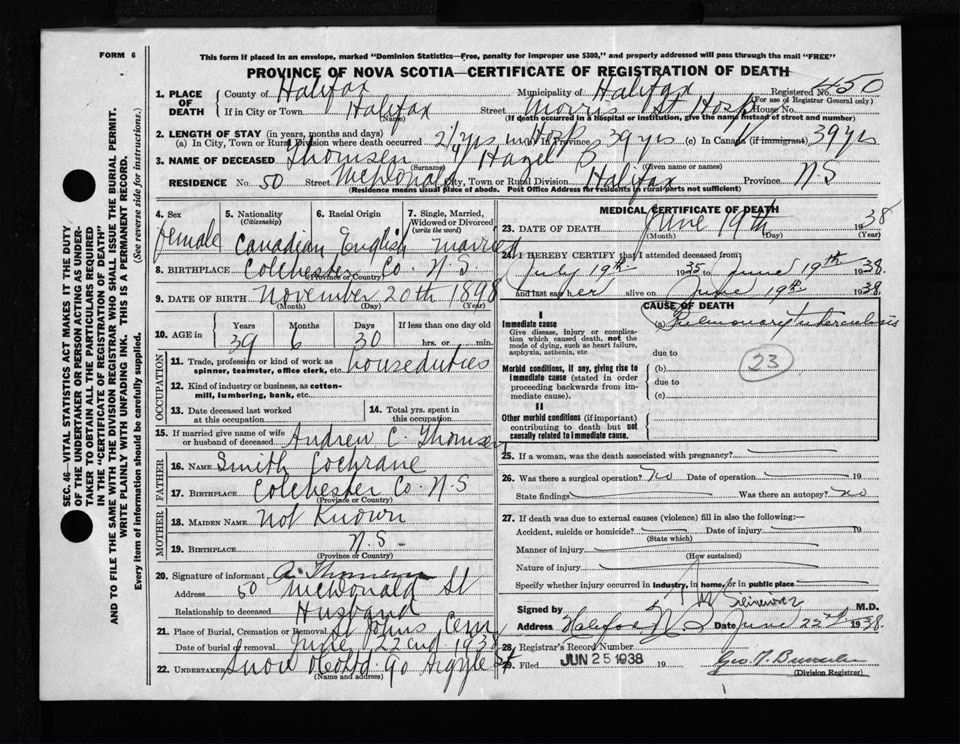 FORM 6
This form if placed in an envelope, marked "Dominion Statistics—Free, penalty for improper use $300," and properly addressed will pass through the mail "FREE"
PROVINCE OF NOVA SCOTIA—CERTIFICATE OF REGISTRATION OF DEATH
1. PLACE OF DEATH County of Halifax Municipality of Halifax Registered No. 450
(For use of Registrar General only)
If in City or Town Halifax Street Morris St Hosp House No.
(Name) (If death occurred in a Hospital or institution, give the name instead of street and number)
2. LENGTH OF STAY (in years, months and days)
(a) In City, Town or Rural Division where death occurred 2 1/4 yrs in Hosp In Province 39 yrs (c) In Canada (if immigrant) 39 yrs
3. NAME OF DECEASED Thomsen Hazel S
(Surname) (Given name or names)
RESIDENCE No. 50 Street McDonald City, Town or Rural Division Halifax Province N.S
(Residence means usual place of abode. Post Office Address for residents in rural parts not sufficient)
SEC. 46—VITAL STATISTICS ACT MAKES IT THE DUTY OF THE UNDERTAKER OR PERSON ACTING AS UNDERTAKER TO OBTAIN ALL THE PARTICULARS REQUIRED IN THE "CERTIFICATE OF REGISTRATION OF DEATH" AND TO FILE THE SAME WITH THE DIVISION REGISTRAR WHO SHALL ISSUE THE BURIAL PERMIT.
WRITE PLAINLY WITH UNFADING INK. THIS IS A PERMANENT RECORD.
Every item of information should be carefully supplied. (See reverse side for instructions.)
4. Sex Female
5. Nationality (Citizenship) Canadian
6. Racial Origin English
7. Single, Married, Widowed or Divorced (write the word) Married
8. BIRTHPLACE Colchester Co. N.S.
(Province or Country)
9. DATE OF BIRTH November 20th 1898
(Month) (Day) (Year)
10. AGE in Years 39 Months 6 Days 30 If less than one day old hrs. or min.
OCCUPATION
11. Trade, profession or kind of work as spinner, teamster, office clerk, etc. houseduties
12. Kind of industry or business, as cotton-mill, lumbering, bank, etc.
13. Date deceased last worked at this occupation
14. Total yrs. spent in this occupation
15. If married give name of wife or husband of deceased Andrew C. Thomsen
FATHER
16. NAME Smith Cochrane
17. BIRTHPLACE Colchester Co. N.S
(Province or Country)
MOTHER
18. MAIDEN NAME Not Known
19. BIRTHPLACE N.S.
(Province or Country)
20. Signature of informant A. Thomsen
Address 50 McDonald St
Relationship to deceased Husband
21. Place of Burial, Cremation or Removal St Johns Cem
Date of burial or removal June 22nd 1938
22. Undertaker Snow & Co Ltd 90 Argyle St
(Name and address)
MEDICAL CERTIFICATE OF DEATH
23. DATE OF DEATH June 19th 1938
(Month) (Day) (Year)
24. I HEREBY CERTIFY that I attended deceased from
July 19th 1935 to June 19th 1938.
and last saw her alive on June 19th 1938.
CAUSE OF DEATH
I
Immediate cause
Give disease, injury or complication which caused death, not the mode of dying, such as heart failure, asphyxia, asthenia, etc
(a) Pulmonary tuberculosis
due to
Morbid conditions, if any, giving rise to immediate cause (stated in order proceeding backwards from immediate cause).
(b)
23
due to
(c)
II
Other morbid conditions (if important) contributing to death but not causally related to immediate cause.
25. If a woman, was the death associated with pregnancy?
26. Was there a surgical operation? No Date of operation 19
State findings Was there an autopsy? no
27. If death was due to external causes (violence) fill in also the following:—
Accident, suicide or homicide? Date of injury 19
(State which)
Manner of injury
(How sustained)
Nature of injury
Specify whether injury occurred in industry, in home, or in public place
Signed by M.D.
Address Halifax, N.S Date June 22nd 1938.
28. Registrar's Record Number
29. Filed JUN 25 1938 19
(Division Registrar)